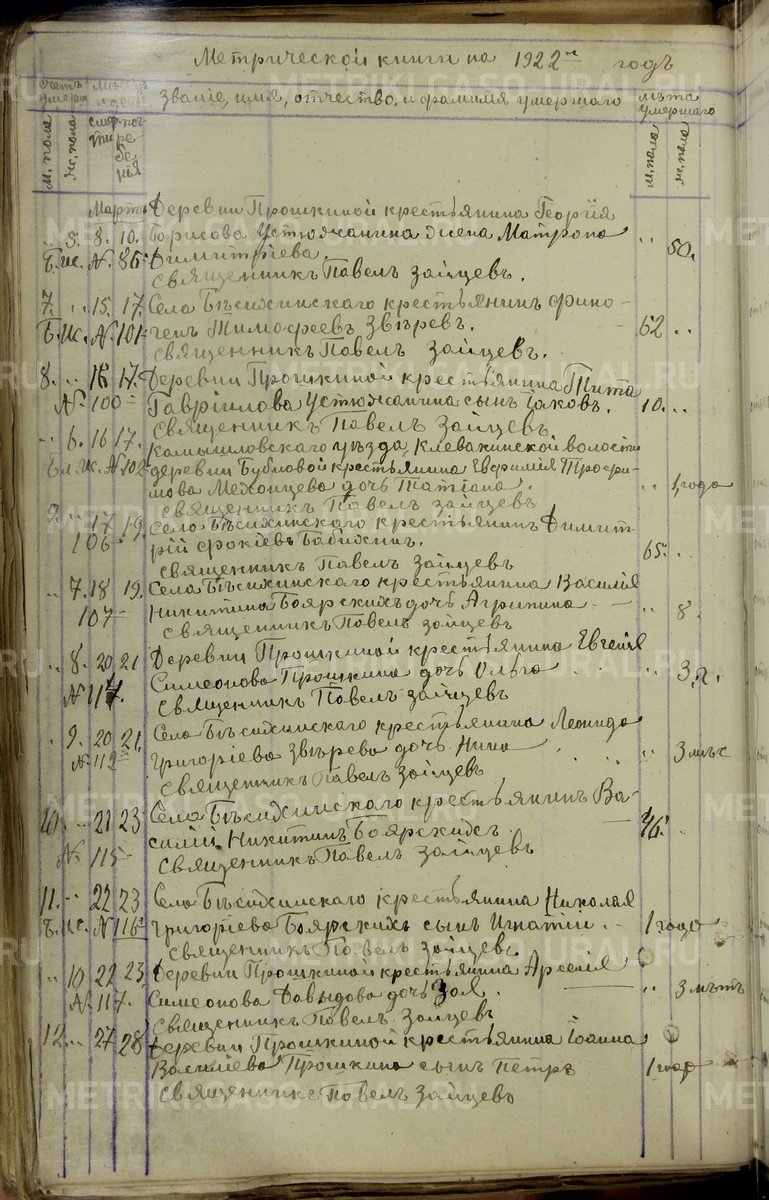 Метрической книги на 1922 годъ
счетъ умерш. мѣсяц. и день Званіе, имя, отчество, и фамилія умершаго лѣта умершаго
м. пола. ж. пола. смерти погребенія м. пола. ж. пола.
Мартъ Деревни Прошкиной крестьянина Георгія
" 5. 8. 10. Борисова Устюжанина жена Матрона " 50.
Б. ис. № 86 Димитріева.
Священникъ Павелъ Зайцевъ.
7. " 15. 17. Села Бѣсихинскаго крестьянинъ Фино-
Б. Ис. № 101 генъ Тимофеевъ Звѣревъ. 62 "
Священникъ Павелъ Зайцевъ.
8. " 16 17. Деревни Прошкиной крестьянина Тита
№ 100 Гавріилова Устюжанина сынъ Іаковъ. 10. "
Священникъ Павелъ Зайцевъ
" 6. 16 17. Камышловскаго уѣзда, Клевакинской волости
№ 102 деревни Бубновой крестьянина Евфимія Трофи-
мова Мехонцева дочь Татіана. " 1 года
Священникъ Павелъ Зайцевъ
9. " 17 19. Села Бѣсихинскаго крестьянинъ Димит-
106 рій Фокіевъ Бабихинъ. 65. "
Священникъ Павелъ Зайцевъ
" 7. 18 19. Села Бѣсихинскаго крестьянина Василія
107 Никитина Боярскихъ дочь Агрипина " 8.
Священникъ Павелъ Зайцевъ
" 8. 20 21 Деревни Прошкиной крестьянина Евгенія
Симеонова Прошкина дочь Ольга " 3 г.
№ Священникъ Павелъ Зайцевъ
" 9. 20 21. Села Бѣсихинскаго крестьянина Леонида
№ 112 Григоріева Звѣрева дочь Нина " 3 мѣс
Священникъ Павелъ Зайцевъ
10. " 21 23 Села Бѣсихинскаго крестьянинъ Ва-
силій Никитинъ Боярскихъ. 46. "
№ 115 Священникъ Павелъ Зайцевъ
11. " 22 23 Села Бѣсихинскаго крестьянина Николая
Б. ис. № 116 Григоріева Боярскихъ сынъ Игнатій. 1 года
Священникъ Павелъ Зайцевъ.
" 10 22 23. Деревни Прошкиной крестьянина Арсенія
№ 117. Симеонова Давыдова дочь Зоя. " 3 лѣтъ
Священникъ Павелъ Зайцевъ
12. " 27 28 Деревни Прошкиной крестьянина Іоанна
Василіева Прошкина сынъ Петръ 1 год
Священникъ Павелъ Зайцевъ
METRIKI.GASO-URAL.RU